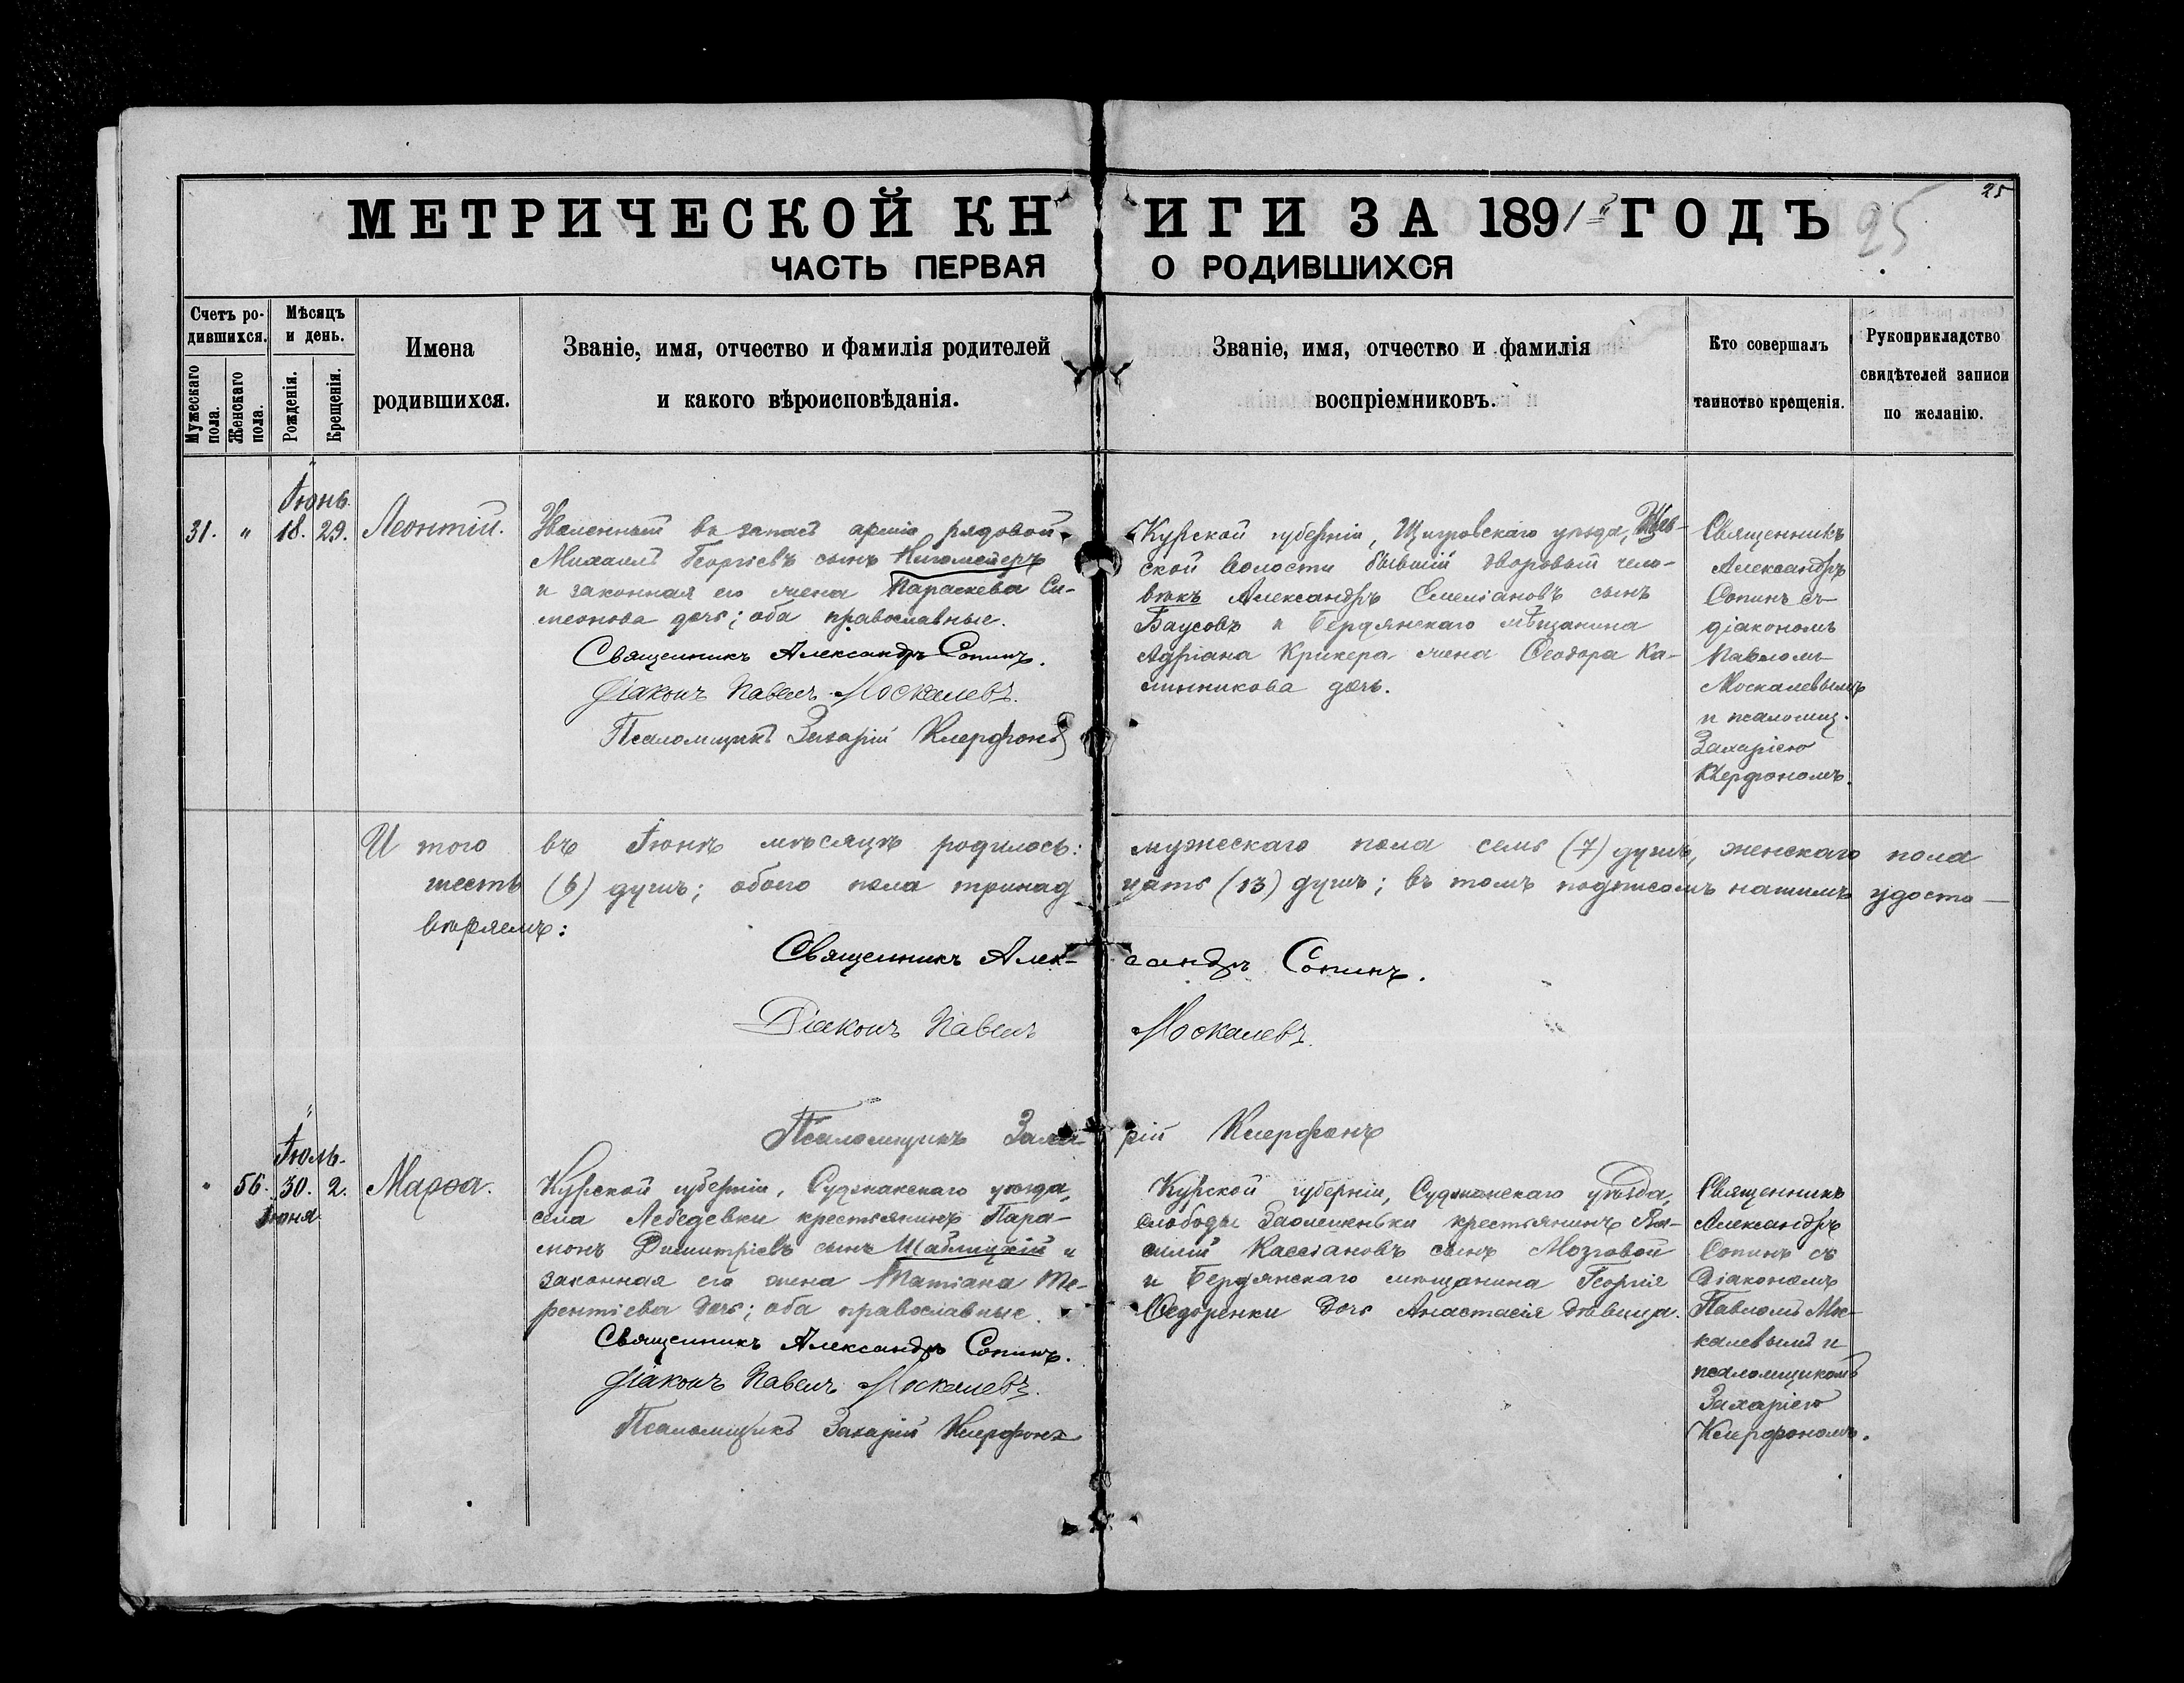 25
МЕТРИЧЕСКОЙ КНИГИ ЗА 1891й ГОДЪ
25
ЧАСТЬ ПЕРВАЯ О РОДИВШИХСЯ
Счетъ ро-
дившихся.
Мужескаго пола.
Женскаго пола.
Мѣсяцъ
и день.
Рожденія.
Крещенія.
Имена
родившихся.
Званіе, имя, отчество и фамилія родителей
и какого вѣроисповѣданія.
Званіе, имя, отчество и фамилія
воспріемниковъ.
Кто совершалъ
таинство крещенія.
Рукоприкладство
свидѣтелей записи
по желанію.
Іюнь.
31. " 18. 29. Леонтій.
Уволенный въ запасъ арміи рядовой
Михаилъ Георгіевъ сынъ
и законная его жена Параскева Си-
меонова дочь; оба православные.
Священникъ Александръ Сопинъ.
Діаконъ Павелъ Москалевъ.
Псаломщикъ Захарій Клерфонъ
Курской губерніи, Щигровскаго уѣзда,
ской волости бывшій дворовый чело-
вѣкъ Александръ Емеліановъ сынъ
Баусовъ и Бердянскаго мѣщанина
Адріана Крикера жена Ѳеодора Ка-
линникова дочь.
Священникъ
Александръ
Сопинъ съ
діакономъ
Павломъ
Москалевымъ
и псаломщ.
Захаріею
Клерфономъ.
И того въ Іюнѣ мѣсяцѣ родилось: мужескаго пола семь (7) душъ, женскаго пола
шесть (6) душъ; обоего пола тринадцать (13) душъ; въ томъ подписомъ нашимъ удосто-
вѣряемъ:
Священникъ Александръ Сопинъ.
Діаконъ Павелъ Москалевъ.
Псаломщикъ Захарій Клерфонъ
Іюль.
" 56. 30. 2. Марѳа.
Іюня
Курской губерніи, Суджанскаго уѣзда,
села Лебедевки крестьянинъ Пара-
монъ Димитріевъ сынъ Шаблицкій и
законная его жена Татіана Те-
рентіева дочь; оба православные.
Священникъ Александръ Сопинъ.
Діаконъ Павелъ Москалевъ.
Псаломщикъ Захарій Клерфонъ
Курской губерніи, Суджанскаго уѣзда,
слободы Заолешеньки крестьянинъ Ва-
силій Кассіановъ сынъ Мозговой
и Бердянскаго мѣщанина Георгія
Ѳедоренки дочь Анастасія дѣвица.
Священникъ
Александръ
Сопинъ съ
Діакономъ
Павломъ Мос-
калевымъ и
псаломщикомъ
Захаріею
Клерфономъ.